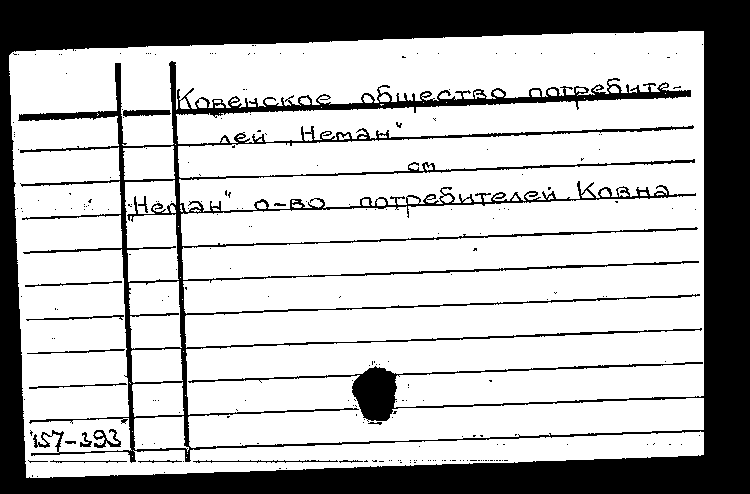 Ковенское общество потребите-
лей „Неман"
см
„Неман" о-во потребителей Ковна
157-393